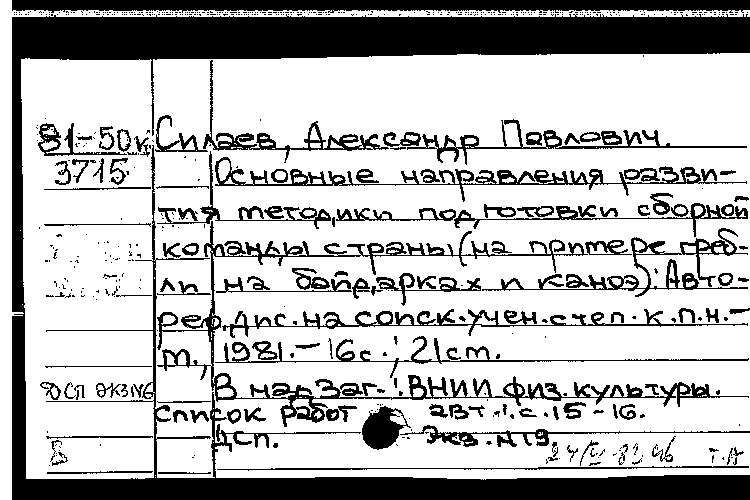 81-50к Силаев, Александр Павлович.
3715 Основные направления разви-
тия методики подготовки сборной
команды страны (на примере греб-
ли на байдарках и каноэ): Авто-
реф. дис. на соиск. учен. степ. к.п.н. -
М., 1981. - 16с.; 21см.
ДСП ЭКЗ№6 В надзаг.: ВНИИ физ. культуры.
Список работ авт.: с. 15-16.
ДСП. Экз. №19.